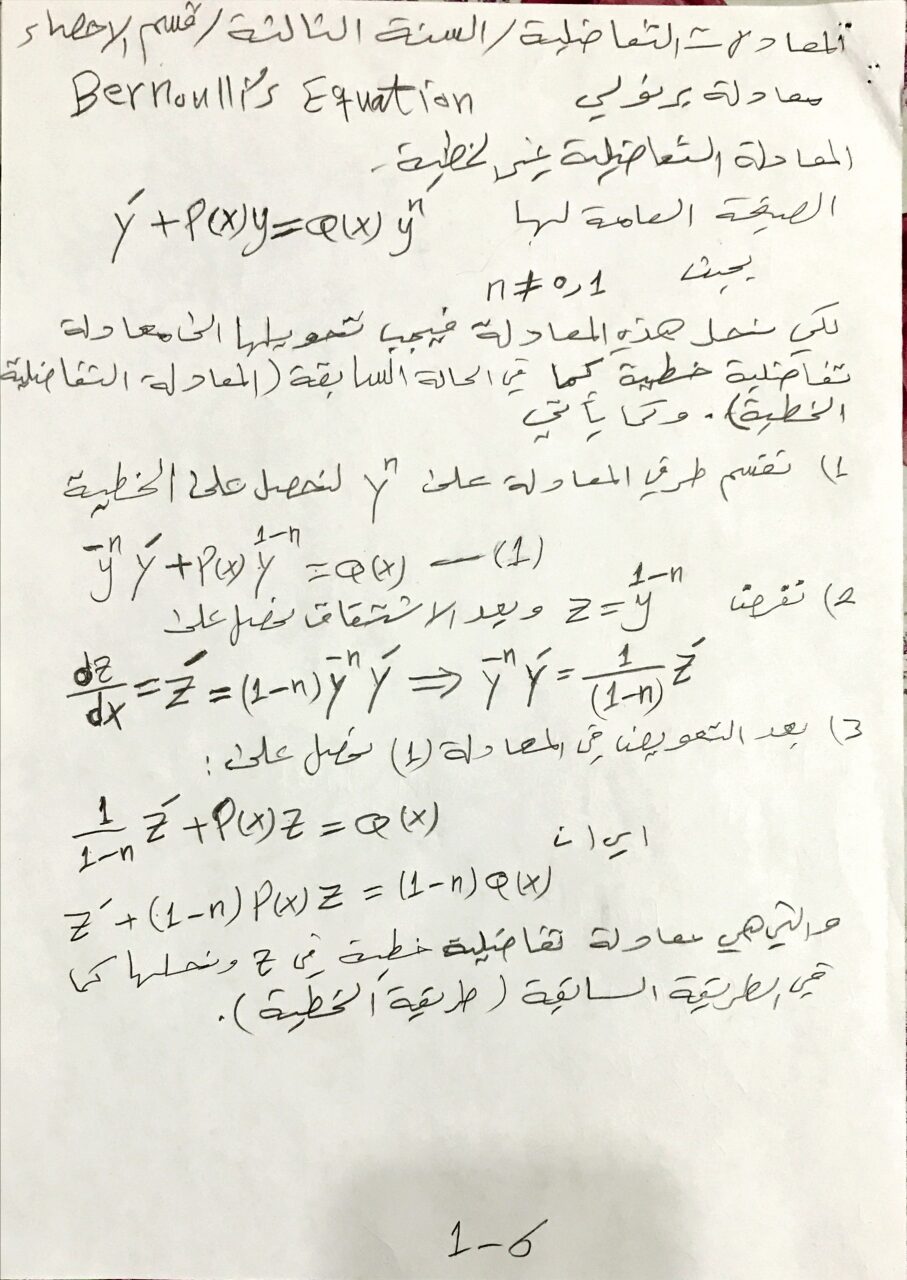 المعادلات التفاضلية/السنة الثالثة/قسم الاحصاء
معادلة برنولي Bernoulli's Equation
المعادلة التفاضلية غير الخطية.
الصيغة العامة لها y′ + P(x)y = Q(x) yⁿ
بحيث n ≠ 0, 1
لكي نحل هذه المعادلة فيجب تحويلها الى معادلة
تفاضلية خطية كما في الحالة السابقة (المعادلة التفاضلية
الخطية). وكما يأتي
1) نقسم طرفي المعادلة على yⁿ لنحصل على الخطية
y⁻ⁿ y′ + P(x) y¹⁻ⁿ = Q(x) — (1)
2) نفرض z = y¹⁻ⁿ وبعد الاشتقاق نحصل على
dz/dx = z′ = (1-n) y⁻ⁿ y′ ⇒ y⁻ⁿ y′ = 1/(1-n) z′
3) بعد التعويض في المعادلة (1) نحصل على:
1/(1-n) z′ + P(x) z = Q(x)
اي ان
z′ + (1-n) P(x) z = (1-n) Q(x)
والتي هي معادلة تفاضلية خطية في z ونحلها كما
في الطريقة السابقة (طريقة الخطية).
1-6